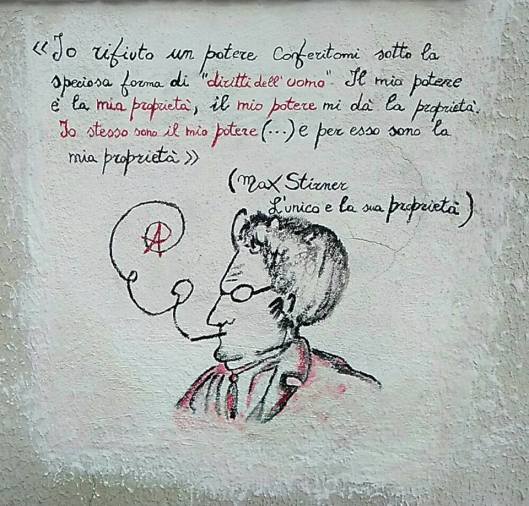 «Io rifiuto un potere conferitomi sotto la
speciosa forma di "diritti dell'uomo". Il mio potere
è la mia proprietà, il mio potere mi dà la proprietà.
Io stesso sono il mio potere (...) e per esso sono la
mia proprietà»
(Max Stirner
L'unico e la sua proprietà)
A